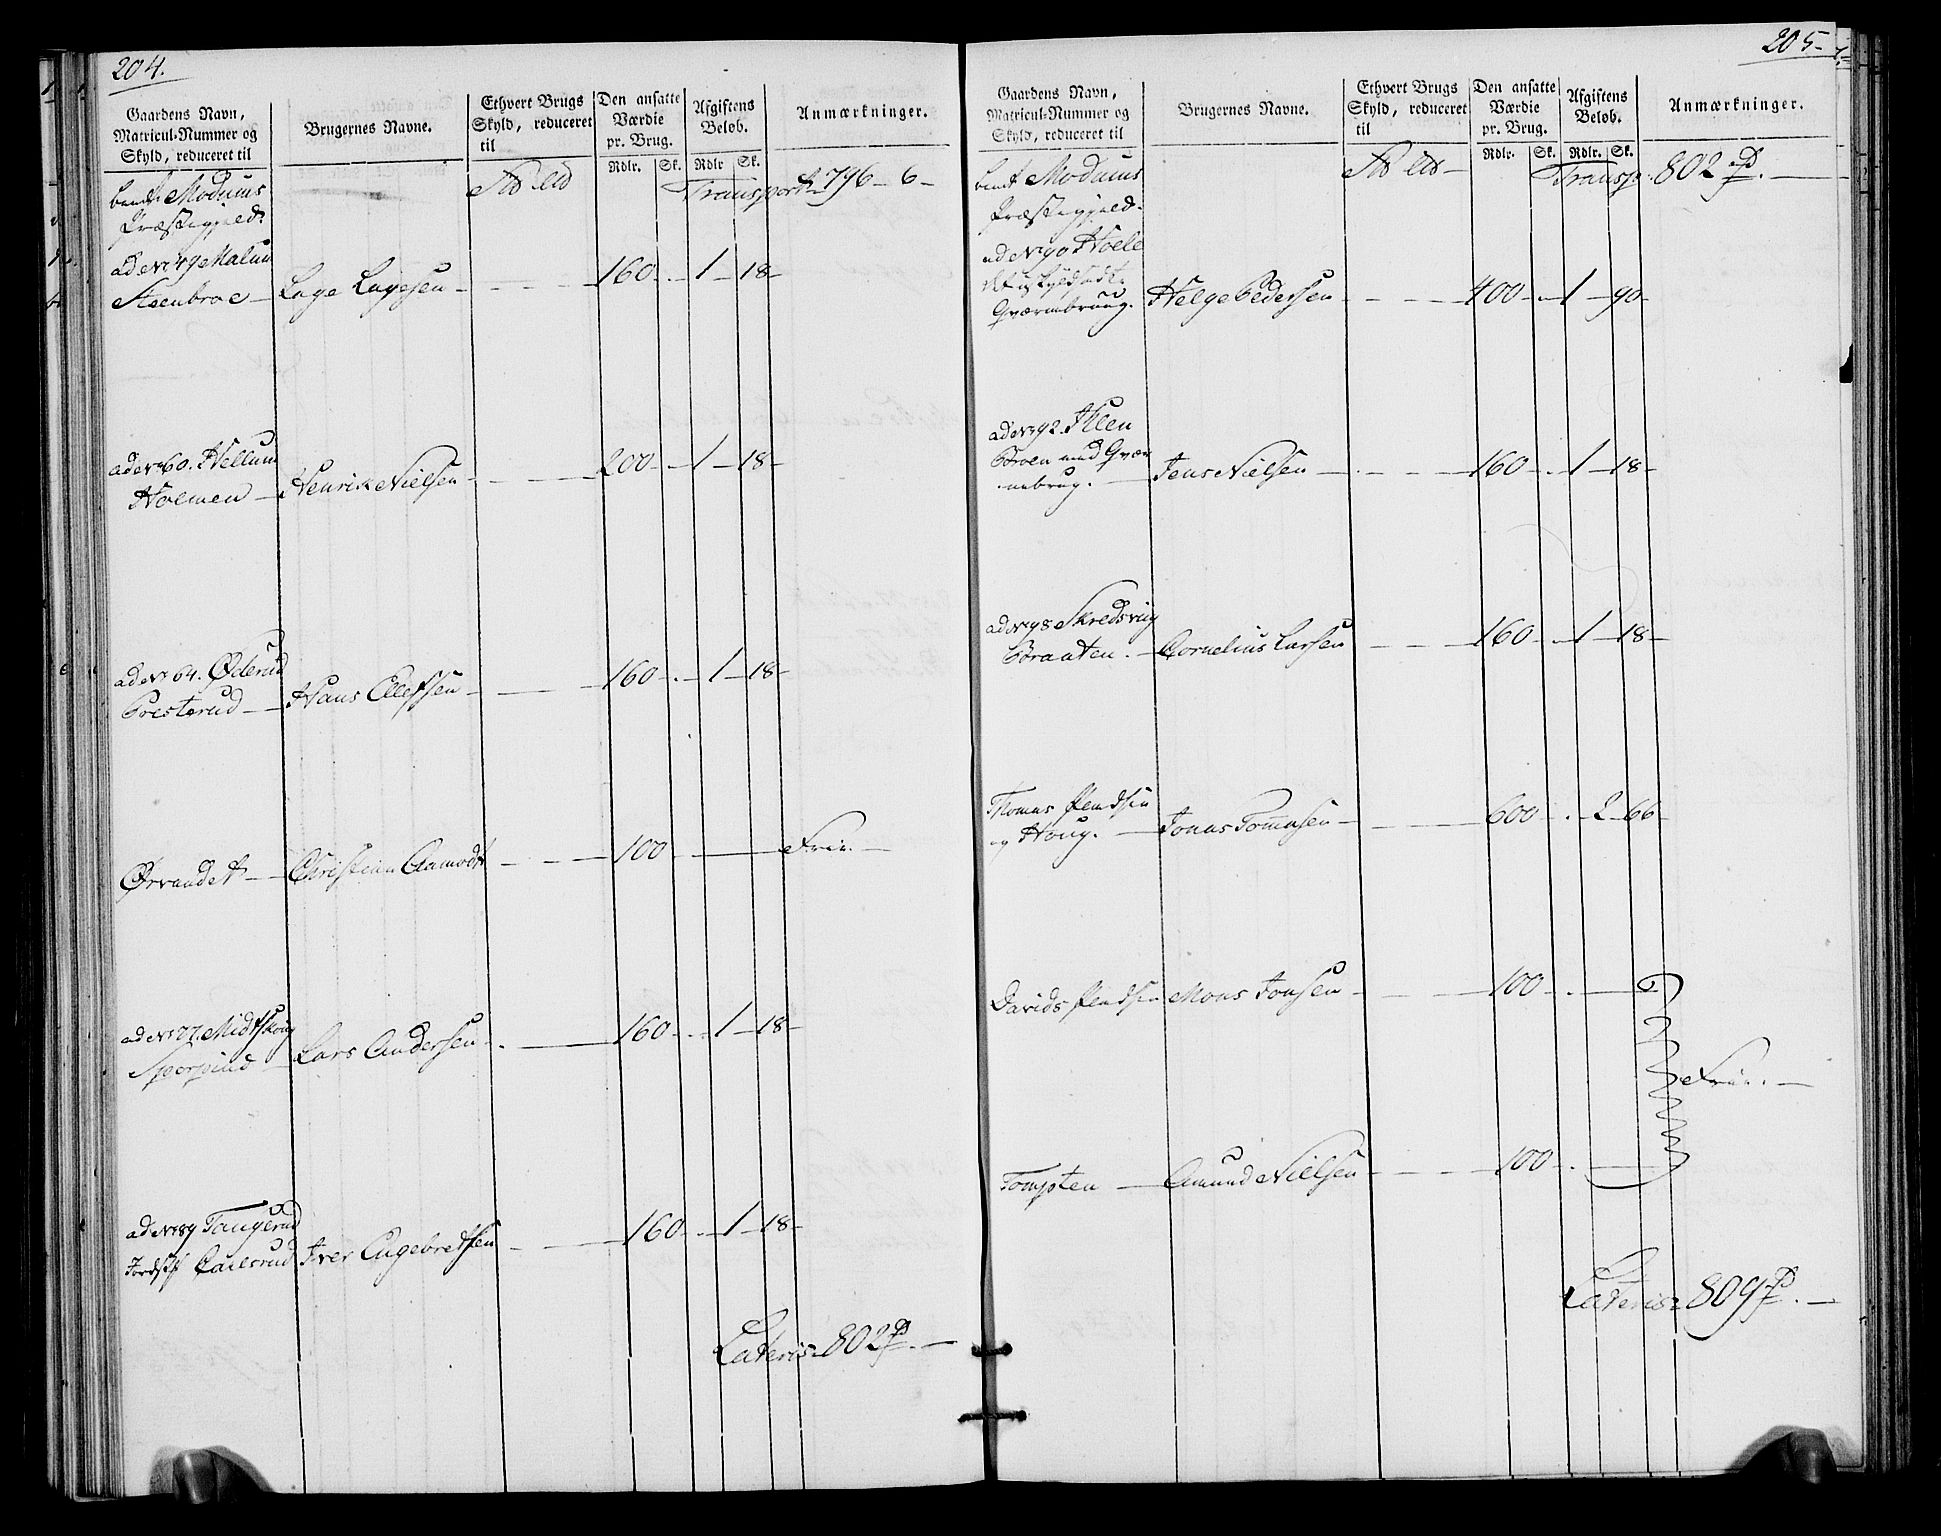 204.
Gaardens Navn,
Matricul-Nummer og
Skyld, reduceret til
Brugernes Navne.
Ethvert Brugs
Skyld, reduceret
til
Den ansatte
Værdie
pr. Brug.
Rdlr. Sk.
Afgiftens
Beløb.
Rdlr Sk.
Anmærkninger.
Modums
Præstegjeld.
Transport 796 - 6 -
ad No 49 Malum
Steenbroe - Lage Lagesen - 160 - 1 - 18 -
ad No 60. Hellum
Holmen - Henrik Nielsen - 200 - 1 - 18 -
ad No 64. Øderud
Presterud - Hans Ollefsen - 160 - 1 - 18 -
Ørvandet - Christian Aamodt - 100 - Frie. -
ad No 77. Midtskoug
Lars Andersen - 160 - 1 - 18 -
ad No 89 Tangerud
Carlsrud Iver Engebretsen - 160 - 1 - 18 -
Lateris 802 -
205
Gaardens Navn,
Matricul-Nummer og
Skyld, reduceret til
Brugernes Navne.
Ethvert Brugs
Skyld, reduceret
til
Den ansatte
Værdie
pr. Brug.
Rdlr. Sk.
Afgiftens
Beløb.
Rdlr. Sk.
Anmærkninger.
Modums
Præstegjeld.
Transp. 802 -
ad No 90 Hoele
Qværnbruug. Helge Pedersen - 400 - 1 - 90 -
ad No 92.
Broen med Qvær
nebrug. - Jens Nielsen - 160 - 1 - 18 -
ad No 98 Skredsviig
Braaten. - Cornelius Larsen - 160 - 1 - 18 -
Thomas
og Houg. - Jonas Tomasen - 600 - 2 - 66 -
Davids Mons Jonsen - 100 -
Frie. -
Tompten - Amund Nielsen - 100 -
Lateris 809 -